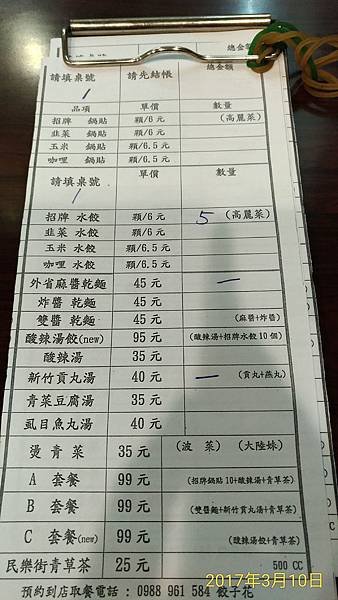 總金額
請填桌號 請先結帳 總金額
1
品項 單價 數量
招牌 鍋貼 顆/6元 (高麗菜)
韭菜 鍋貼 顆/6元
玉米 鍋貼 顆/6.5元
咖哩 鍋貼 顆/6.5元
請填桌號 單價 數量
1
招牌 水餃 顆/6元 5 (高麗菜)
韭菜 水餃 顆/6元
玉米 水餃 顆/6.5元
咖哩 水餃 顆/6.5元
外省麻醬乾麵 45元 一
炸醬 乾麵 45元
雙醬 乾麵 45元 (麻醬+炸醬)
酸辣湯餃(new) 95元 (酸辣湯+招牌水餃10個)
酸辣湯 35元
新竹貢丸湯 40元 一 (貢丸+燕丸)
青菜豆腐湯 35元
虱目魚丸湯 40元
燙青菜 35元 (波菜) (大陸妹)
A 套餐 99元 (招牌鍋貼10+酸辣湯+青草茶)
B 套餐 99元 (雙醬麵+新竹貢丸湯+青草茶)
C 套餐(new) 99元 (酸辣湯餃+青草茶)
民樂街青草茶 25元 500 CC
預約到店取餐電話：0988 961 584 餃子花
2017年3月10日